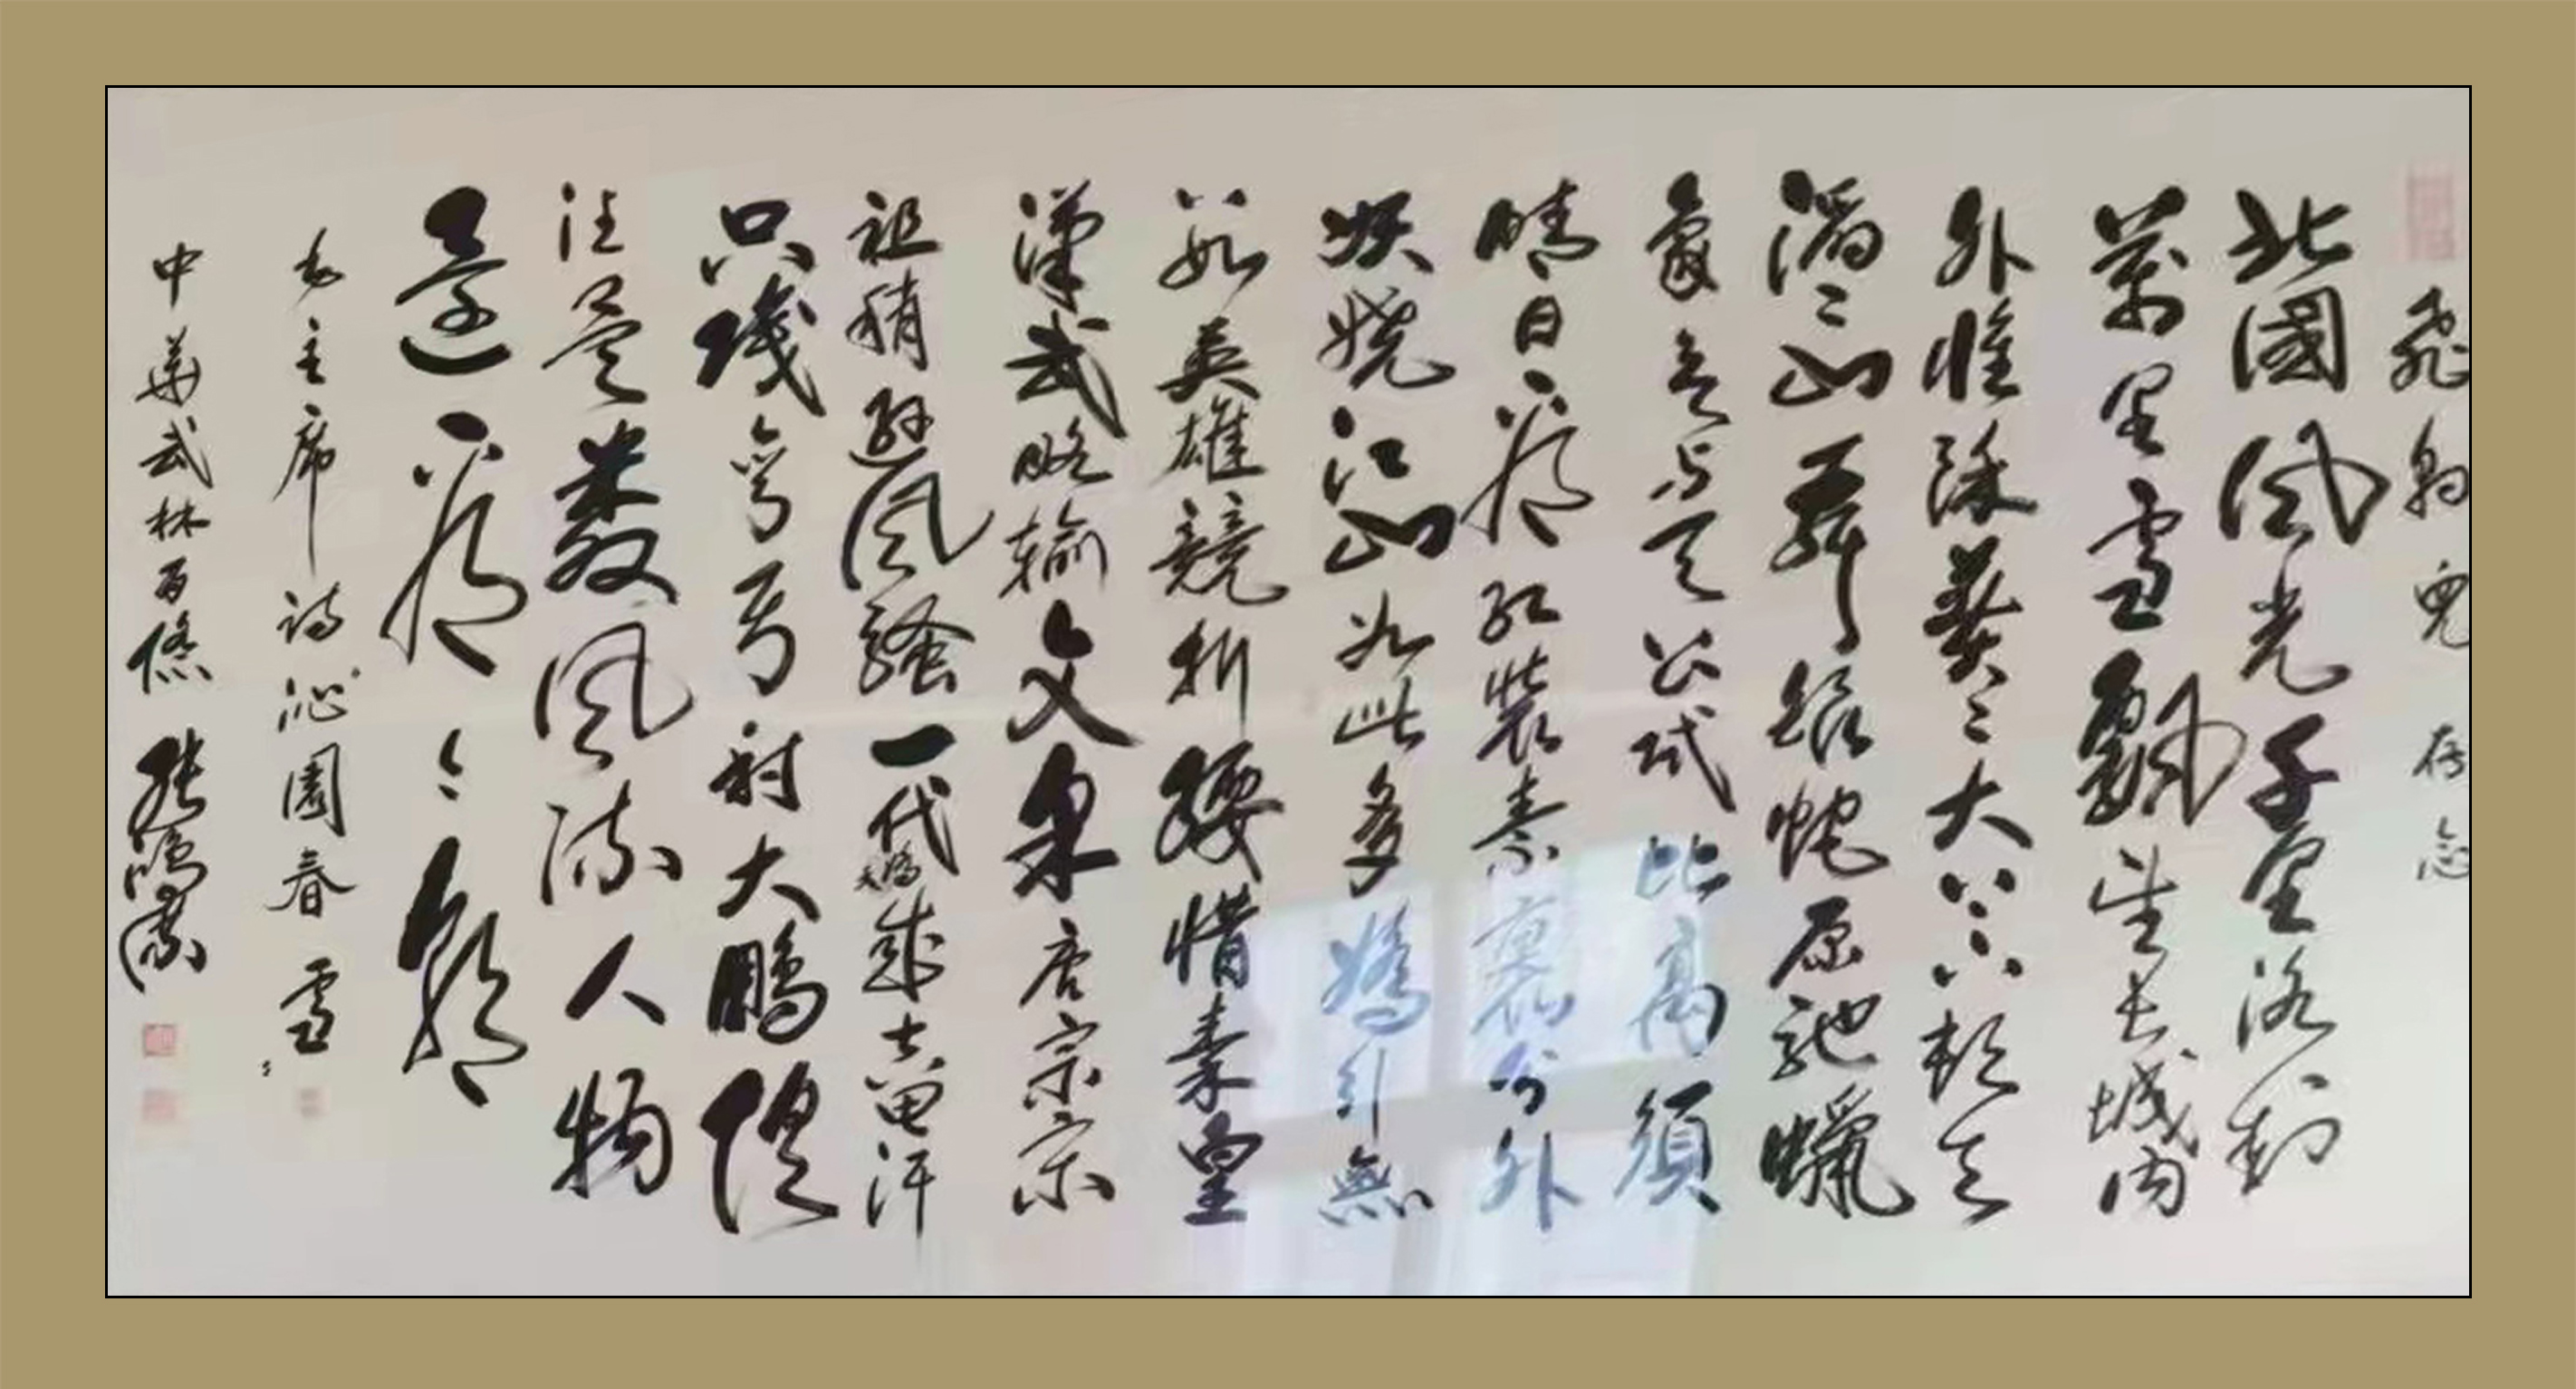 飛豹兒 存念
北國風光千里冰封
萬里雪飄望長城内
外惟餘莽〻大河上下頓失
滔〻山舞銀蛇原馳蠟
象欲与天公試比高須
晴日看紅裝素裹分外
妖嬈江山如此多嬌引無
數英雄競折腰惜秦皇
漢武略輸文采唐宗宋
祖稍遜風騷一代天驕成吉思汗
只識彎弓射大鵰俱
往矣數風流人物
還看今朝
毛主席詩沁園春雪
中華武林百傑 張鴻